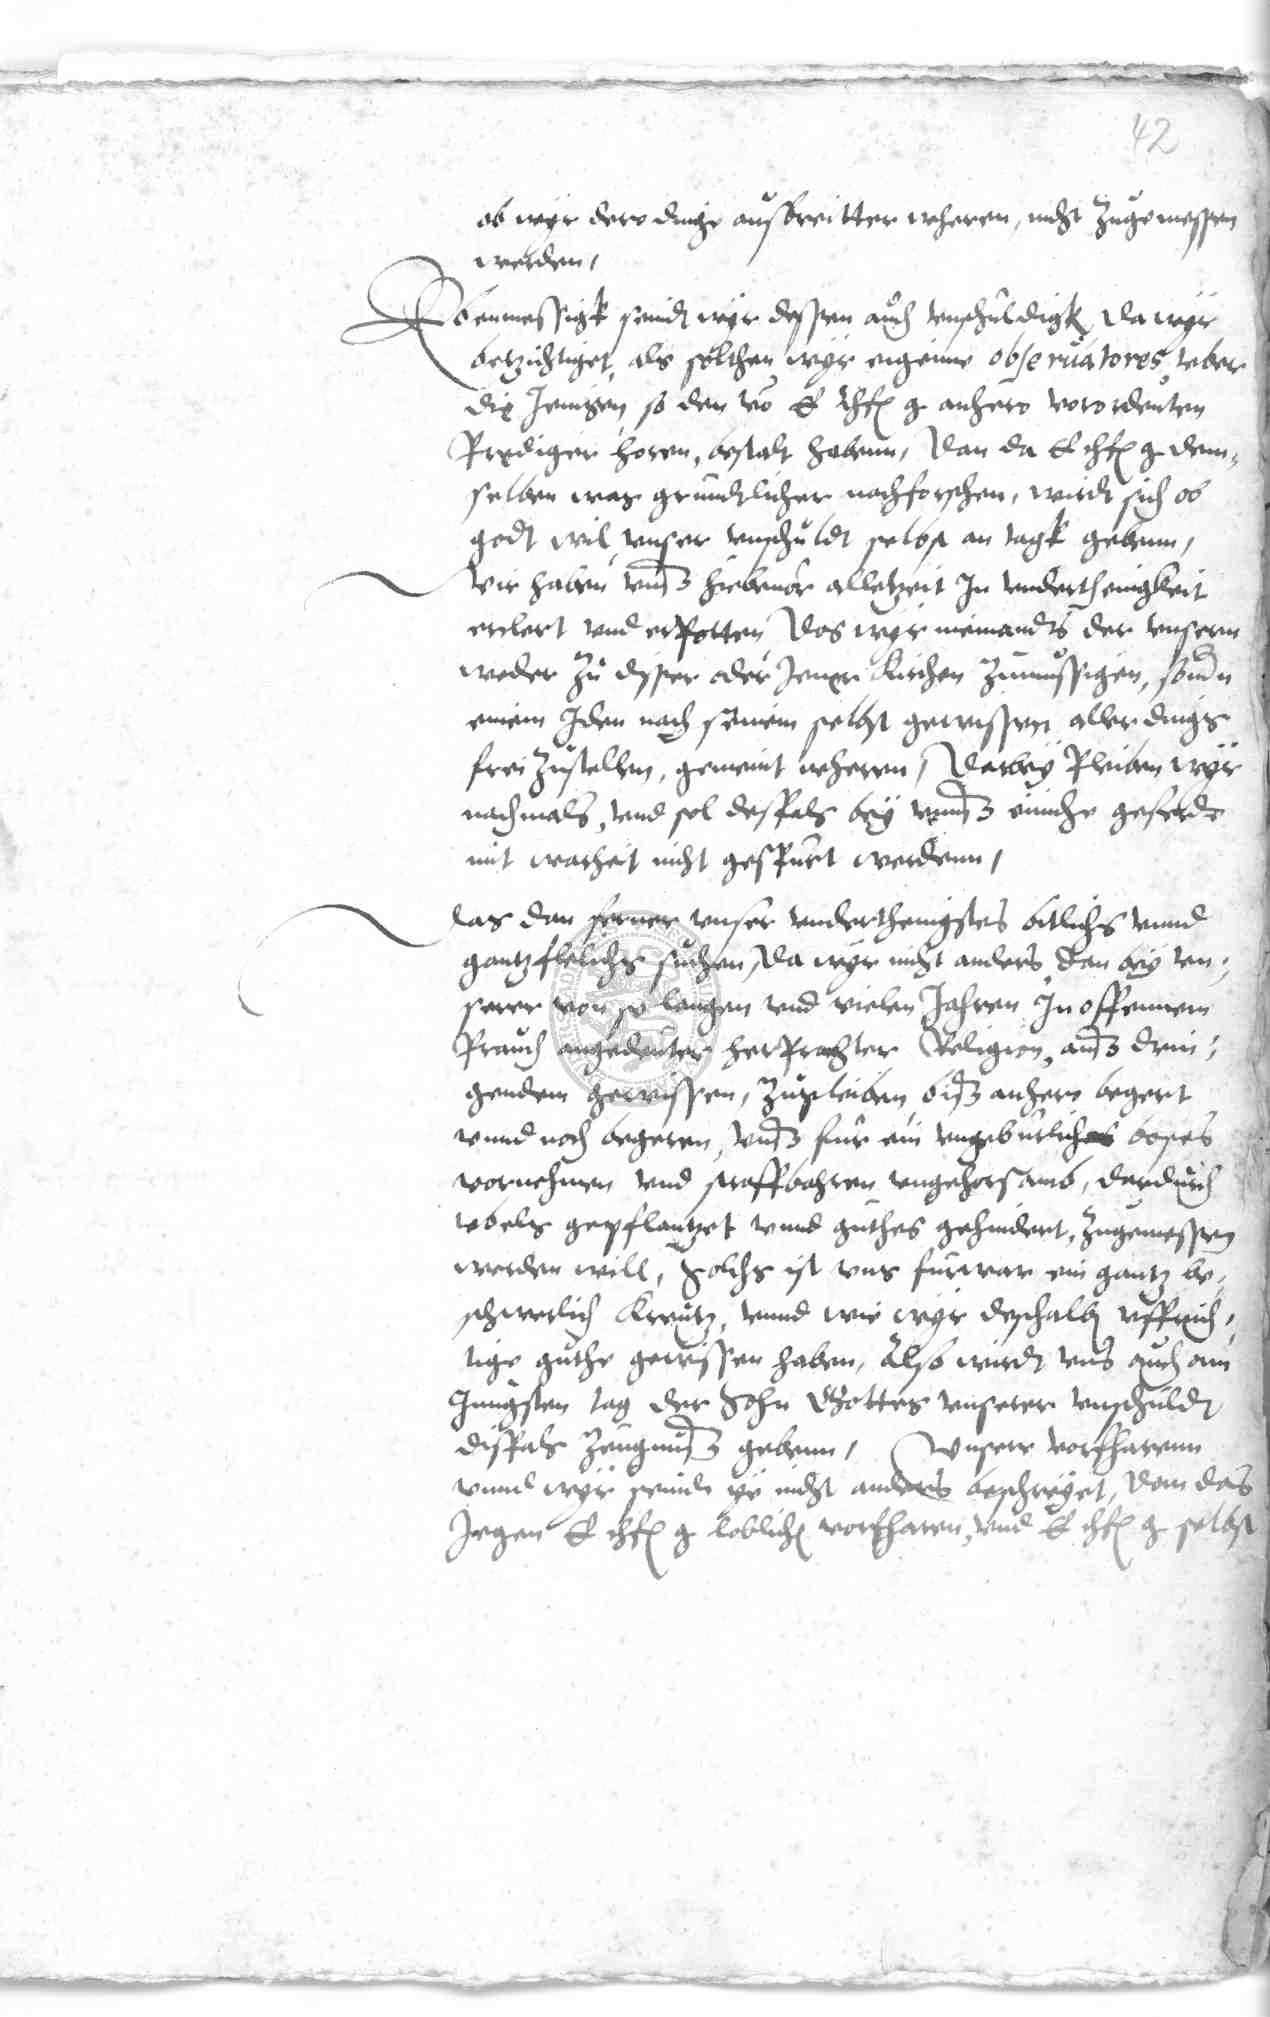 42
ob wyr dero dinge ausbreitter wheren, nicht zugemessen
werden,
Ebenmessigk seindt wyr dessen auch vnschuldigk, da wyr
betzichtiget, als solthen wyr eigenne obseruatores, veber
die Jenigen, so den vo E Chf g anhero verordenten
Prediger horen, bestalt habenn, Dan da E chf g dem=
selben was gründtlicher nachforschen, wirdt sich ob
godt wil, vnser vnschuldt selbst an tagk gebenn,
Wir haben vns hiebeuor alletzeit In vnderthenigkeit
erclert vnd erPotten, Das wyr niemandts der vnsern
weder zu disser oder Jener Kirchen zumussigen, sondern
einem Jden nach seinem selbst gewissen aller dings
frei zustellen, gemeint wheren, Darbey Pleiben wyr
nachmals, vnd sol desfals bey vnns einiche geferde
mit warheit nicht gespurt werdenn,
Das dan ferner vnser vnderthenigstes bitlichs vnnd
gantz flelichs suchen, Da wyr nicht anders, dan bey vn=
serer von so langen vnd vielen Jahren In offennem
Prauch angedeuter herPrachter Religion, aus drin=
gendem gewissen, zupleiben, bis anhero begert
vnnd noch begeren, vns fur ein vngeburliches boses
vornehmen vnd straffbahren vngehorsamb, dardurch
vbels gepflantzet vnnd guthes gehindert, zugemessen
werden will, Solchs ist vns furwar ein gantz be=
schwerlich Kreutz, vnnd wie wyr deshalb vffrich=
tige guthe gewissen haben, Also wirdt vns auch am
Jungsten tag der Sohn Gottes vnserer vnschuldt
disfals zeugnus gebenn, Vnsere vorfharenn
vnnd wyr seindt ye nicht anders beschreyet, dan das
Jegen E chf g loblich vorfharen, vnd E chf g selbst